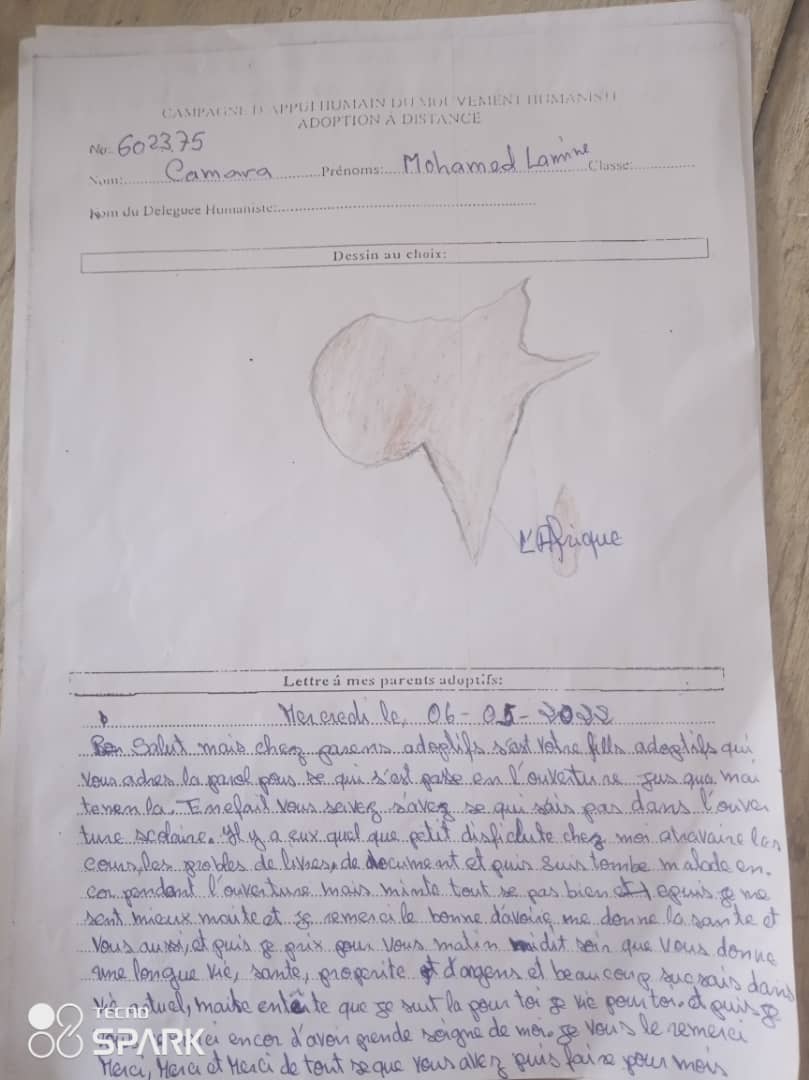 CAMPAGNE D'APPUI HUMAIN DU MOUVEMENT HUMANISTE
ADOPTION À DISTANCE
No: 602375
Nom: Camara Prénoms: Mohamed Lamine Classe:
Nom du Deleguée Humaniste:
Dessin au choix:
L'Afrique
Lettre á mes parents adoptifs:
Mercredi le, 06-05-2022
Salut mais cher parens adoptifs s'est votre fills adoptifs qui
vous adres la parol pous se qui s'est passe en l'ouverture jus qua mai
tenen la. Enefait vous savez se qui sais pas dans l'ouver
ture scolaire. Il y a eux quel que petit disficlute chez moi atravaire les
cours, les probles de livres, de document et puis suis tombe malade en-
cor pendant l'ouverture mais minte tout se pas bien et epuis je me
sent mieux maite et je remerci le bonne d'avoire me donne la sante et
vous aussi, et puis je prix pour vous matin midit soir que vous donne
une longue vie, sante, properite et d'argens et beaucoup suc sais dans
vie actuel, maite que je suit la pour toi je vie pour toi. et puis je
vous encor d'avoir prende soigne de moi. je vous le remerci
Merci, Merci et Merci de tout se que vous avez puis faire pour mois
TECNO
SPARK